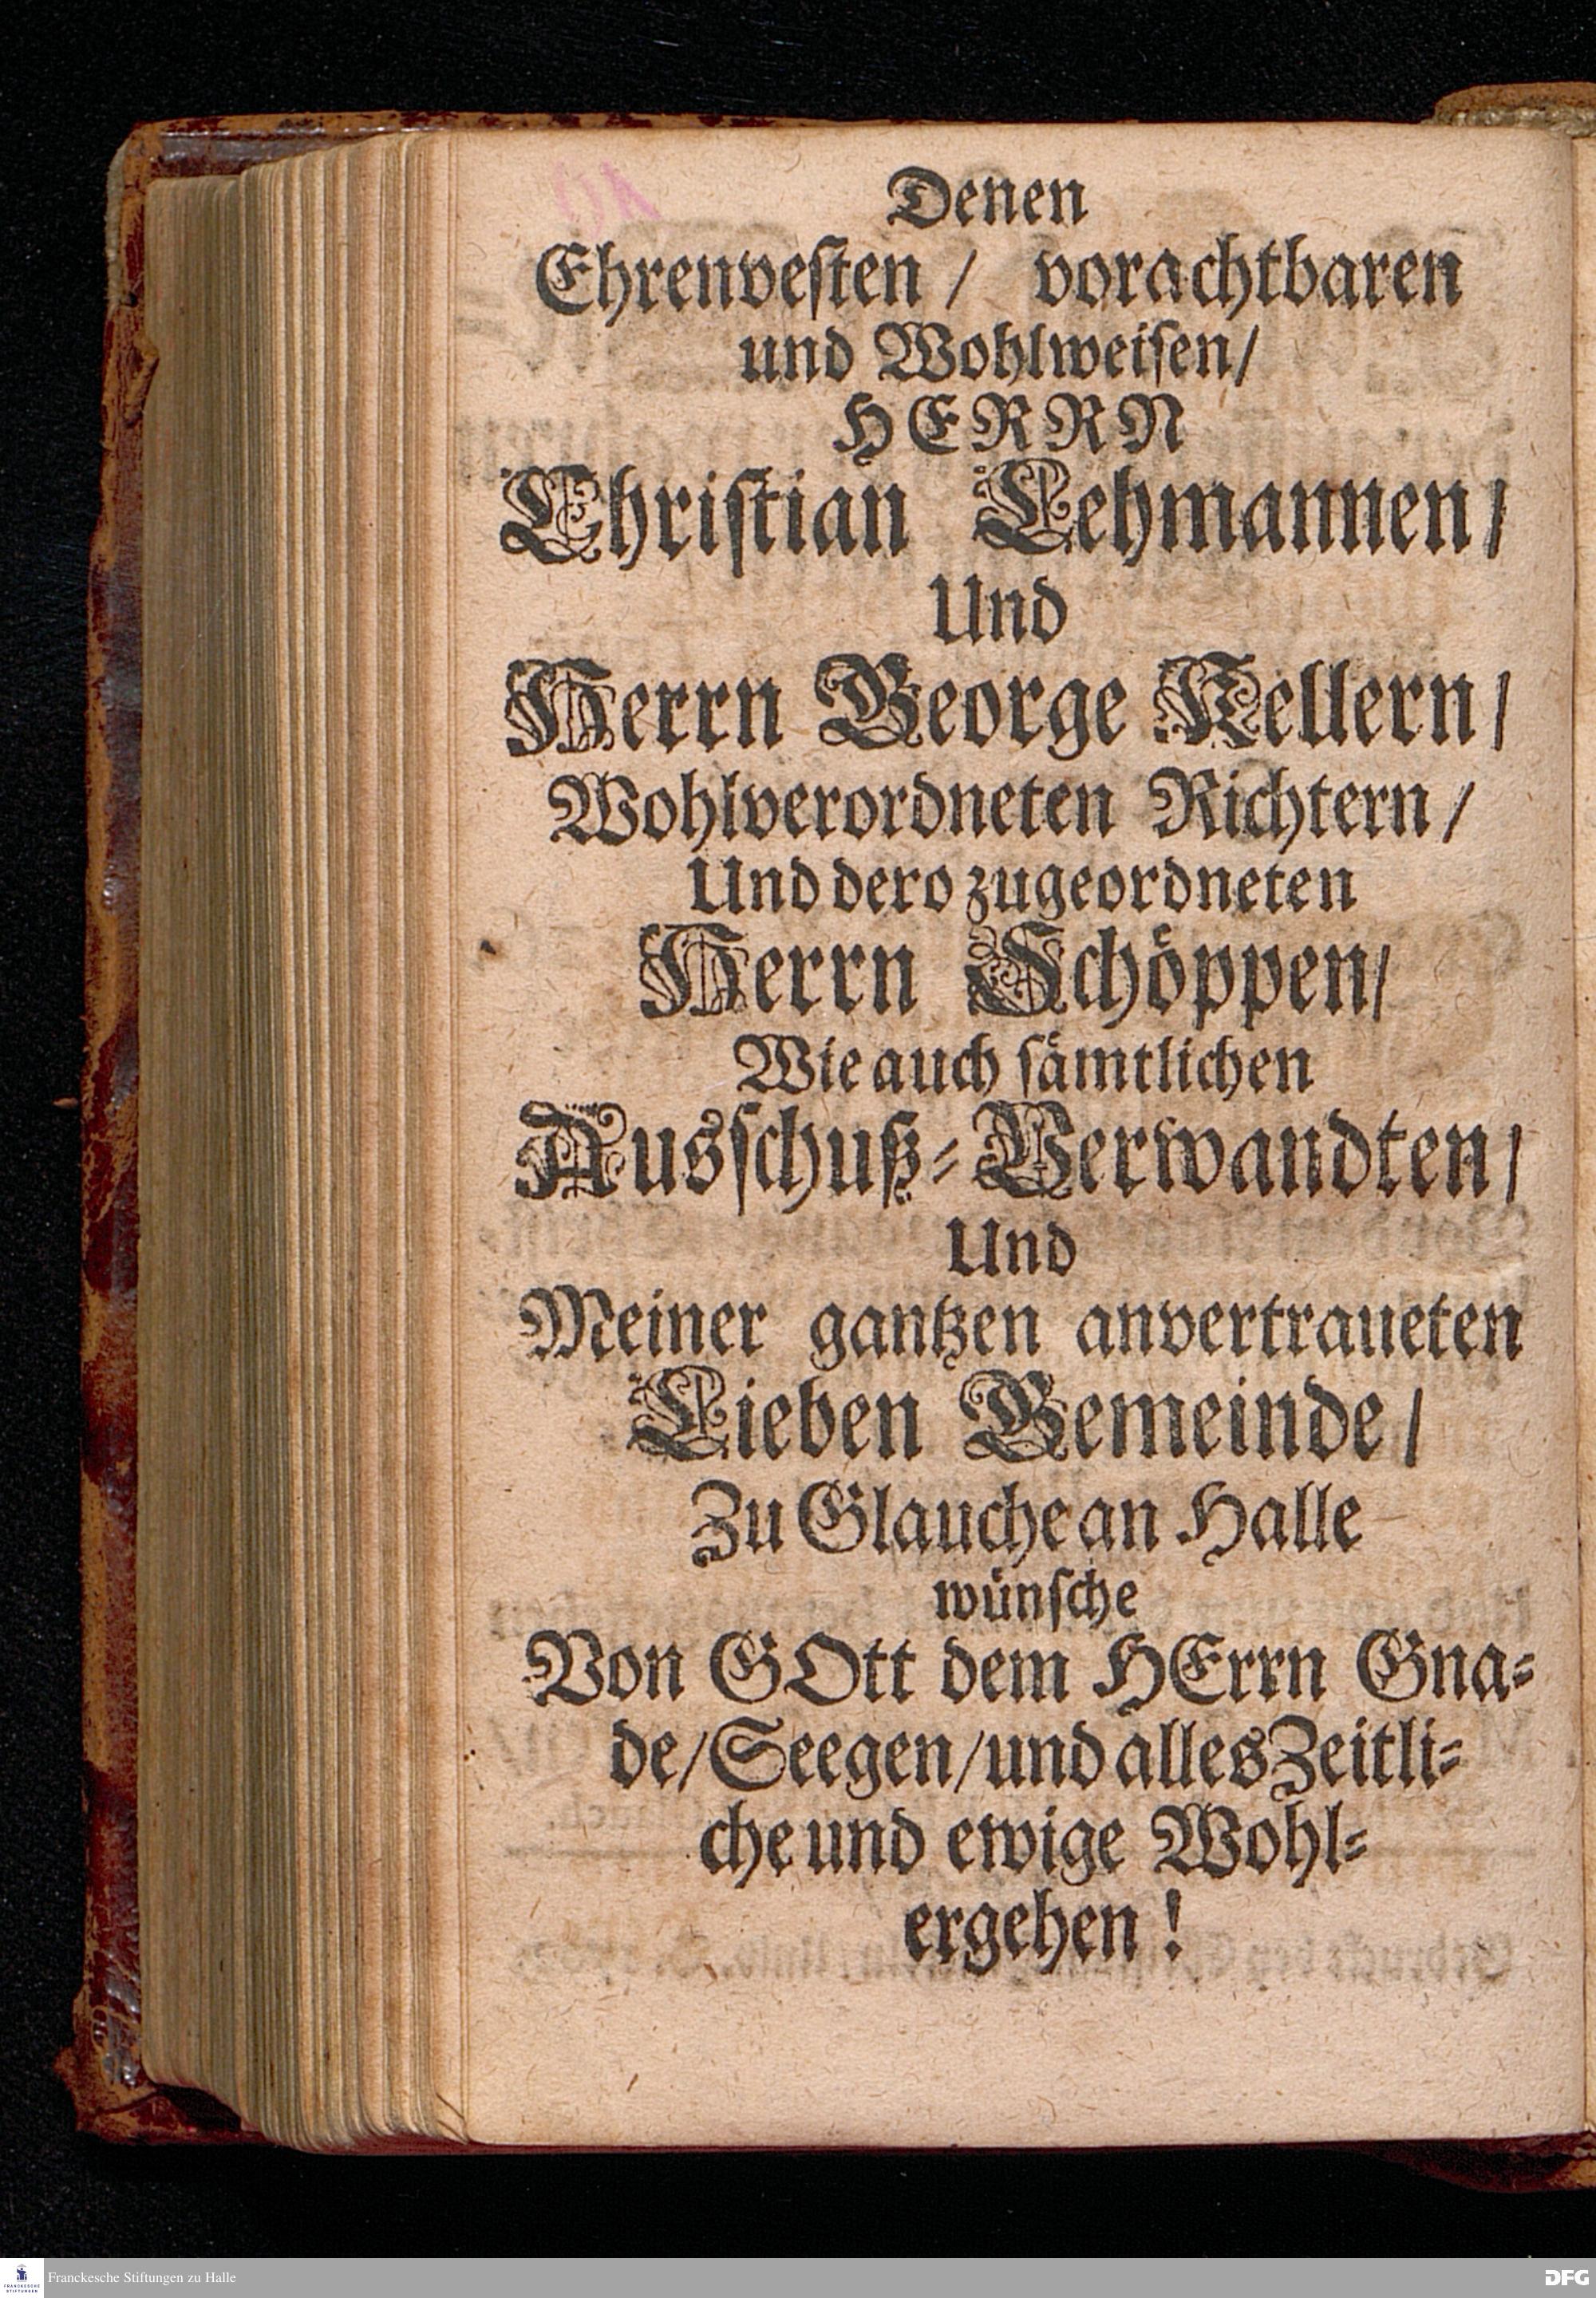 Denen
Ehrenveſten / vorachtbaren
und Wohlweiſen/
HERRN
Chriſtian Lehmannen/
Und
Herrn George Kellern/
Wohlverordneten Richtern/
Und dero zugeordneten
Herrn Schöppen/
Wie auch ſämtlichen
Ausſchuß-Verwandten/
Und
Meiner gantzen anvertraueten
Lieben Gemeinde/
Zu Glauche an Halle
wünſche
Von GOtt dem HErrn Gna-
de/Seegen/und alles Zeitli-
che und ewige Wohl-
ergehen!
Franckesche Stiftungen zu Halle
FRANCKESCHE STIFTUNGEN
DFG